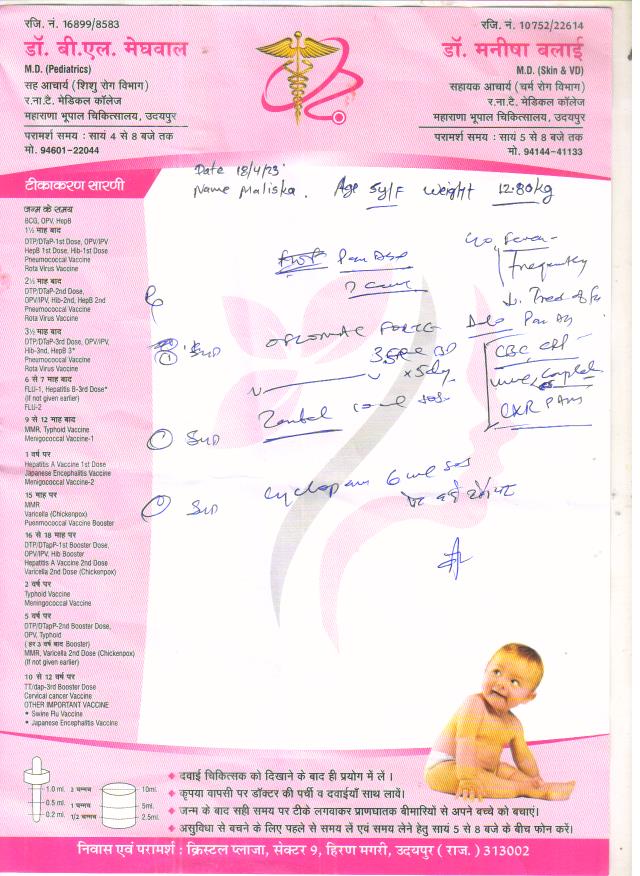 रजि. नं. 16899/8583
डॉ. बी.एल. मेघवाल
M.D. (Pediatrics)
सह आचार्य (शिशु रोग विभाग)
र.ना.टै. मेडिकल कॉलेज
महाराणा भूपाल चिकित्सालय, उदयपुर
परामर्श समय : सायं 4 से 8 बजे तक
मो. 94601-22044
रजि. नं. 10752/22614
डॉ. मनीषा बलाई
M.D. (Skin & VD)
सहायक आचार्य (चर्म रोग विभाग)
र.ना.टै. मेडिकल कॉलेज
महाराणा भूपाल चिकित्सालय, उदयपुर
परामर्श समय : सायं 5 से 8 बजे तक
मो. 94144-41133
Date 18/4/23
Name Maliska. Age 5y/F Weight 12.80kg
टीकाकरण सारणी
जन्म के समय
BCG, OPV, HepB
1½ माह बाद
DTP/DTaP-1st Dose, OPV/IPV
HepB 1st Dose, Hib-1st Dose
Pneumococcal Vaccine
Rota Virus Vaccine
2½ माह बाद
DTP/DTaP-2nd Dose,
OPV/IPV, Hib-2nd, HepB 2nd
Pneumococcal Vaccine
Rota Virus Vaccine
3½ माह बाद
DTP/DTaP-3rd Dose, OPV/IPV,
Hib-3nd, HepB 3*
Pneumococcal Vaccine
Rota Virus Vaccine
6 से 7 माह बाद
FLU-1, Hepatitis B-3rd Dose*
(If not given earlier)
FLU-2
9 से 12 माह बाद
MMR, Typhoid Vaccine
Menigococcal Vaccine-1
1 वर्ष पर
Hepatitis A Vaccine 1st Dose
Japanese Encephalitis Vaccine
Menigococcal Vaccine-2
15 माह पर
MMR
Varicella (Chickenpox)
Puenmococcal Vaccine Booster
16 से 18 माह पर
DTP/DTapP-1st Booster Dose,
OPV/IPV, Hib Booster
Hepatitis A Vaccine 2nd Dose
Varicella 2nd Dose (Chickenpox)
2 वर्ष पर
Typhoid Vaccine
Meningococcal Vaccine
5 वर्ष पर
DTP/DTapP-2nd Booster Dose,
OPV, Typhoid
( हर 3 वर्ष बाद Booster)
MMR, Varicella 2nd Dose (Chickenpox)
(If not given earlier)
10 से 12 वर्ष पर
TT/dap-3rd Booster Dose
Cervical cancer Vaccine
OTHER IMPORTANT VACCINE
* Swine Flu Vaccine
* Japanese Encephalitis Vaccine
Fever
Frequently
1 Syp
FORTE
BD
x 5day
CBC CRP
Urine Complete
CXR PA
Syp Zentel
Syp Cyclopam 6 ml SOS
1.0 ml.
0.5 ml.
0.2 ml.
2 चम्मच
1 चम्मच
1/2 चम्मच
10ml.
5ml.
2.5ml.
दवाई चिकित्सक को दिखाने के बाद ही प्रयोग में लें ।
कृपया वापसी पर डॉक्टर की पर्ची व दवाईयाँ साथ लावें।
जन्म के बाद सही समय पर टीके लगवाकर प्राणघातक बीमारियों से अपने बच्चे को बचाएं।
असुविधा से बचने के लिए पहले से समय लें एवं समय लेने हेतु सायं 5 से 8 बजे के बीच फोन करें।
निवास एवं परामर्श : क्रिस्टल प्लाजा, सेक्टर 9, हिरण मगरी, उदयपुर ( राज. ) 313002